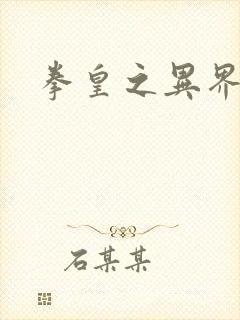 拳皇之異界
石某某